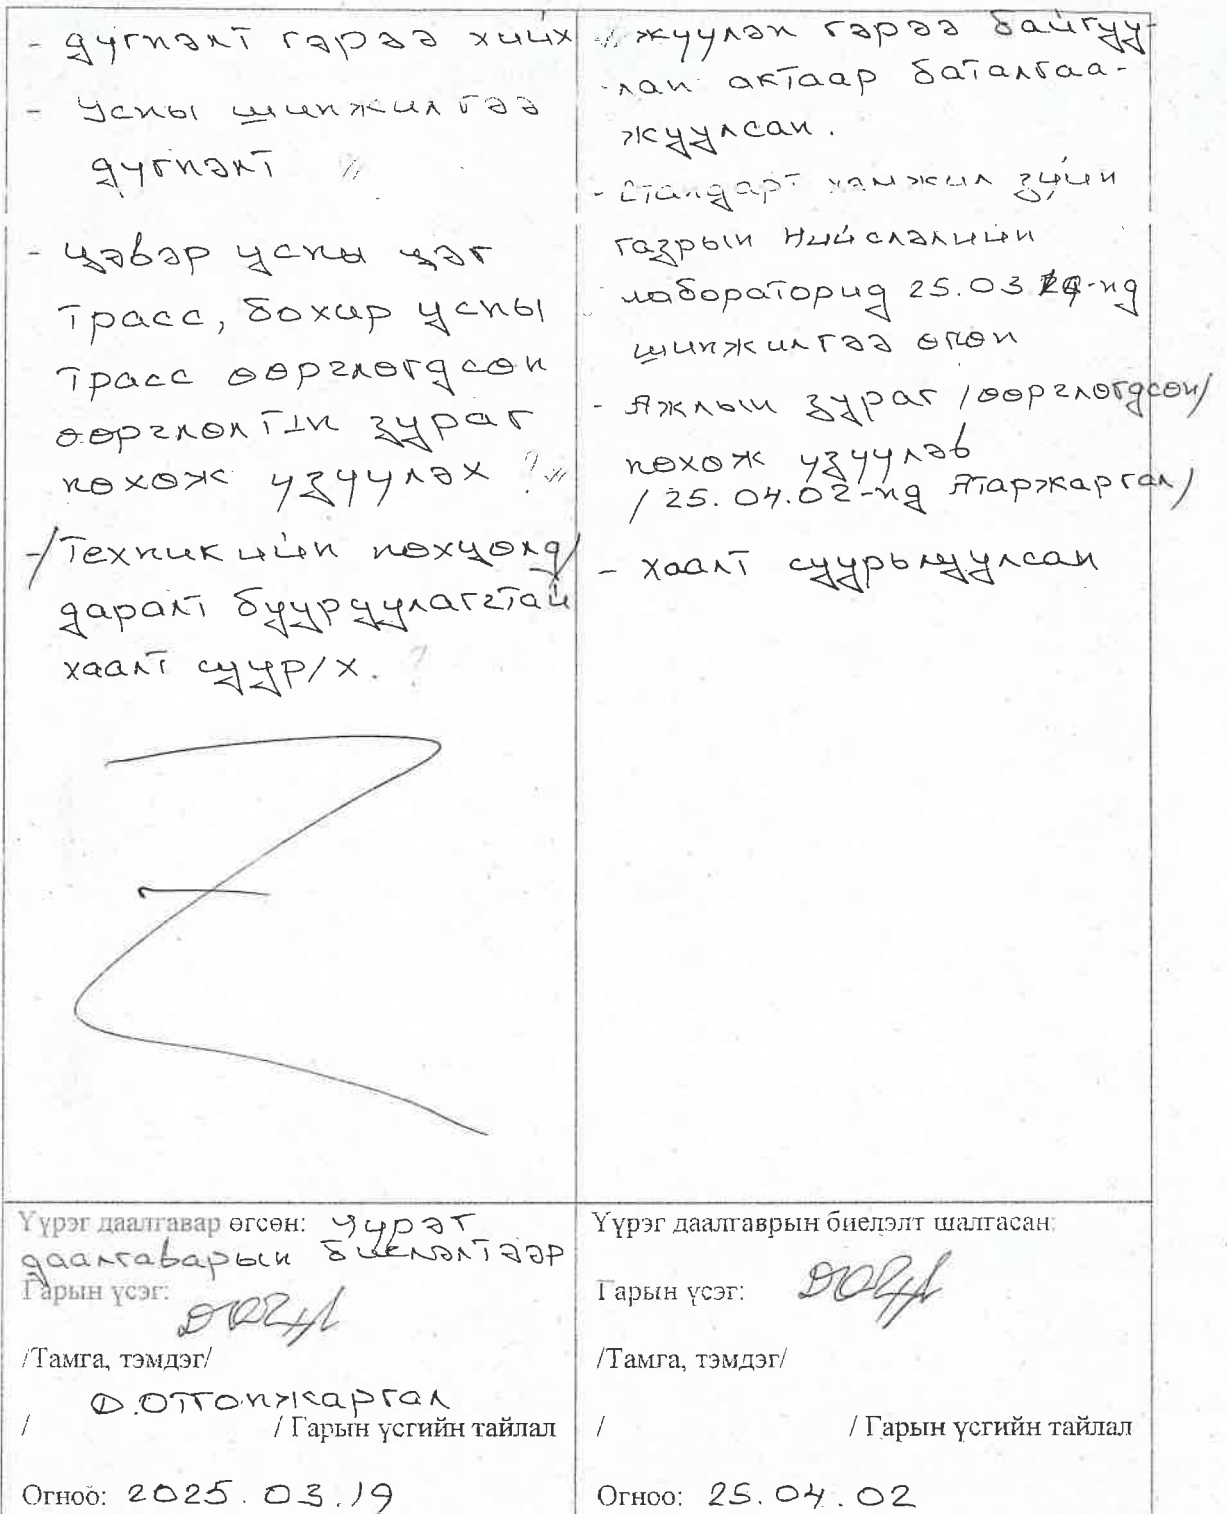 - дүгнэлт гэрээ хийх
- Усны шинжилгээ
дүгнэлт //
- Цэвэр усны цэг
трасс, бохир усны
трасс өөрглөгдсөн
өөрглөлтін зураг
нөхөж үзүүлэх ? //
-/Техникийн нөхцөлд/
даралт бууруулагчтай
хаалт суур/х. ?
// жүүлэн гэрээ байгуу-
лан актаар баталгаа-
жуулсан.
- Стандарт хэмжил зүйн
газрын Нийслэлийн
лабораторид 25.03 -нд
шинжилгээ өгсөн
- Ажлын зураг /өөрглөгдсөн/
нөхөж үзүүлэв
/ 25.04.02-нд Атаржаргал/
- хаалт суурьлуулсан
Үүрэг даалгавар өгсөн: Үүрэг
даалгаварын биелэлтээр
Гарын үсэг:
/Тамга, тэмдэг/
Д.Отгонжаргал
/ / Гарын үсгийн тайлал
Огноо: 2025.03.19
Үүрэг даалгаврын биелэлт шалгасан:
Гарын үсэг:
/Тамга, тэмдэг/
/ / Гарын үсгийн тайлал
Огноо: 25.04.02